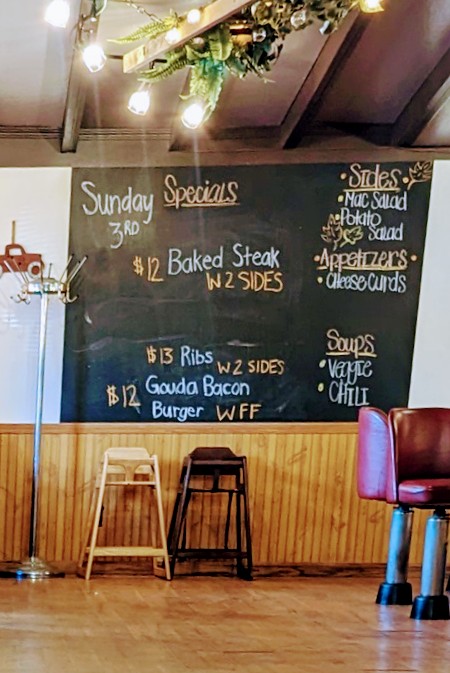 Sunday Specials
3RD
$12 Baked Steak
W 2 SIDES
$13 Ribs W 2 SIDES
$12 Gouda Bacon
Burger W FF
Sides
• Mac Salad
• Potato
Salad
• Appetizers •
• Cheese Curds
Soups
• Veggie
• CHILI